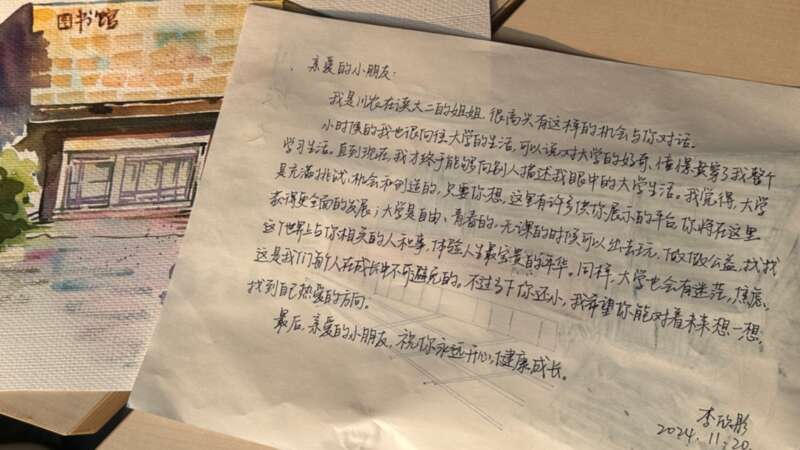 图书馆
亲爱的小朋友:
我是川农在读大二的姐姐,很高兴有这样的机会与你对话。
小时候的我也很向往大学的生活,可以说对大学的好奇、憧憬贯穿了我整个
学习生活。直到现在,我才终于能够向别人描述我眼中的大学生活。我觉得,大学
是充满挑战、机会和创造的,只要你想,这里有许多供你展示的平台,你将在这里
获得更全面的发展;大学是自由、青春的,无课的时候可以出去玩,做做公益,找找
这个世界上与你相关的人和事,体验人生最宝贵的年华。同样,大学也会有迷茫,焦虑、
这是我们每个人在成长中不可避免的。不过当下你还小,我希望你能对着未来想一想,
找到自己热爱的方向。
最后,亲爱的小朋友,祝你永远开心,健康成长。
李欣彤
2024.11.20.